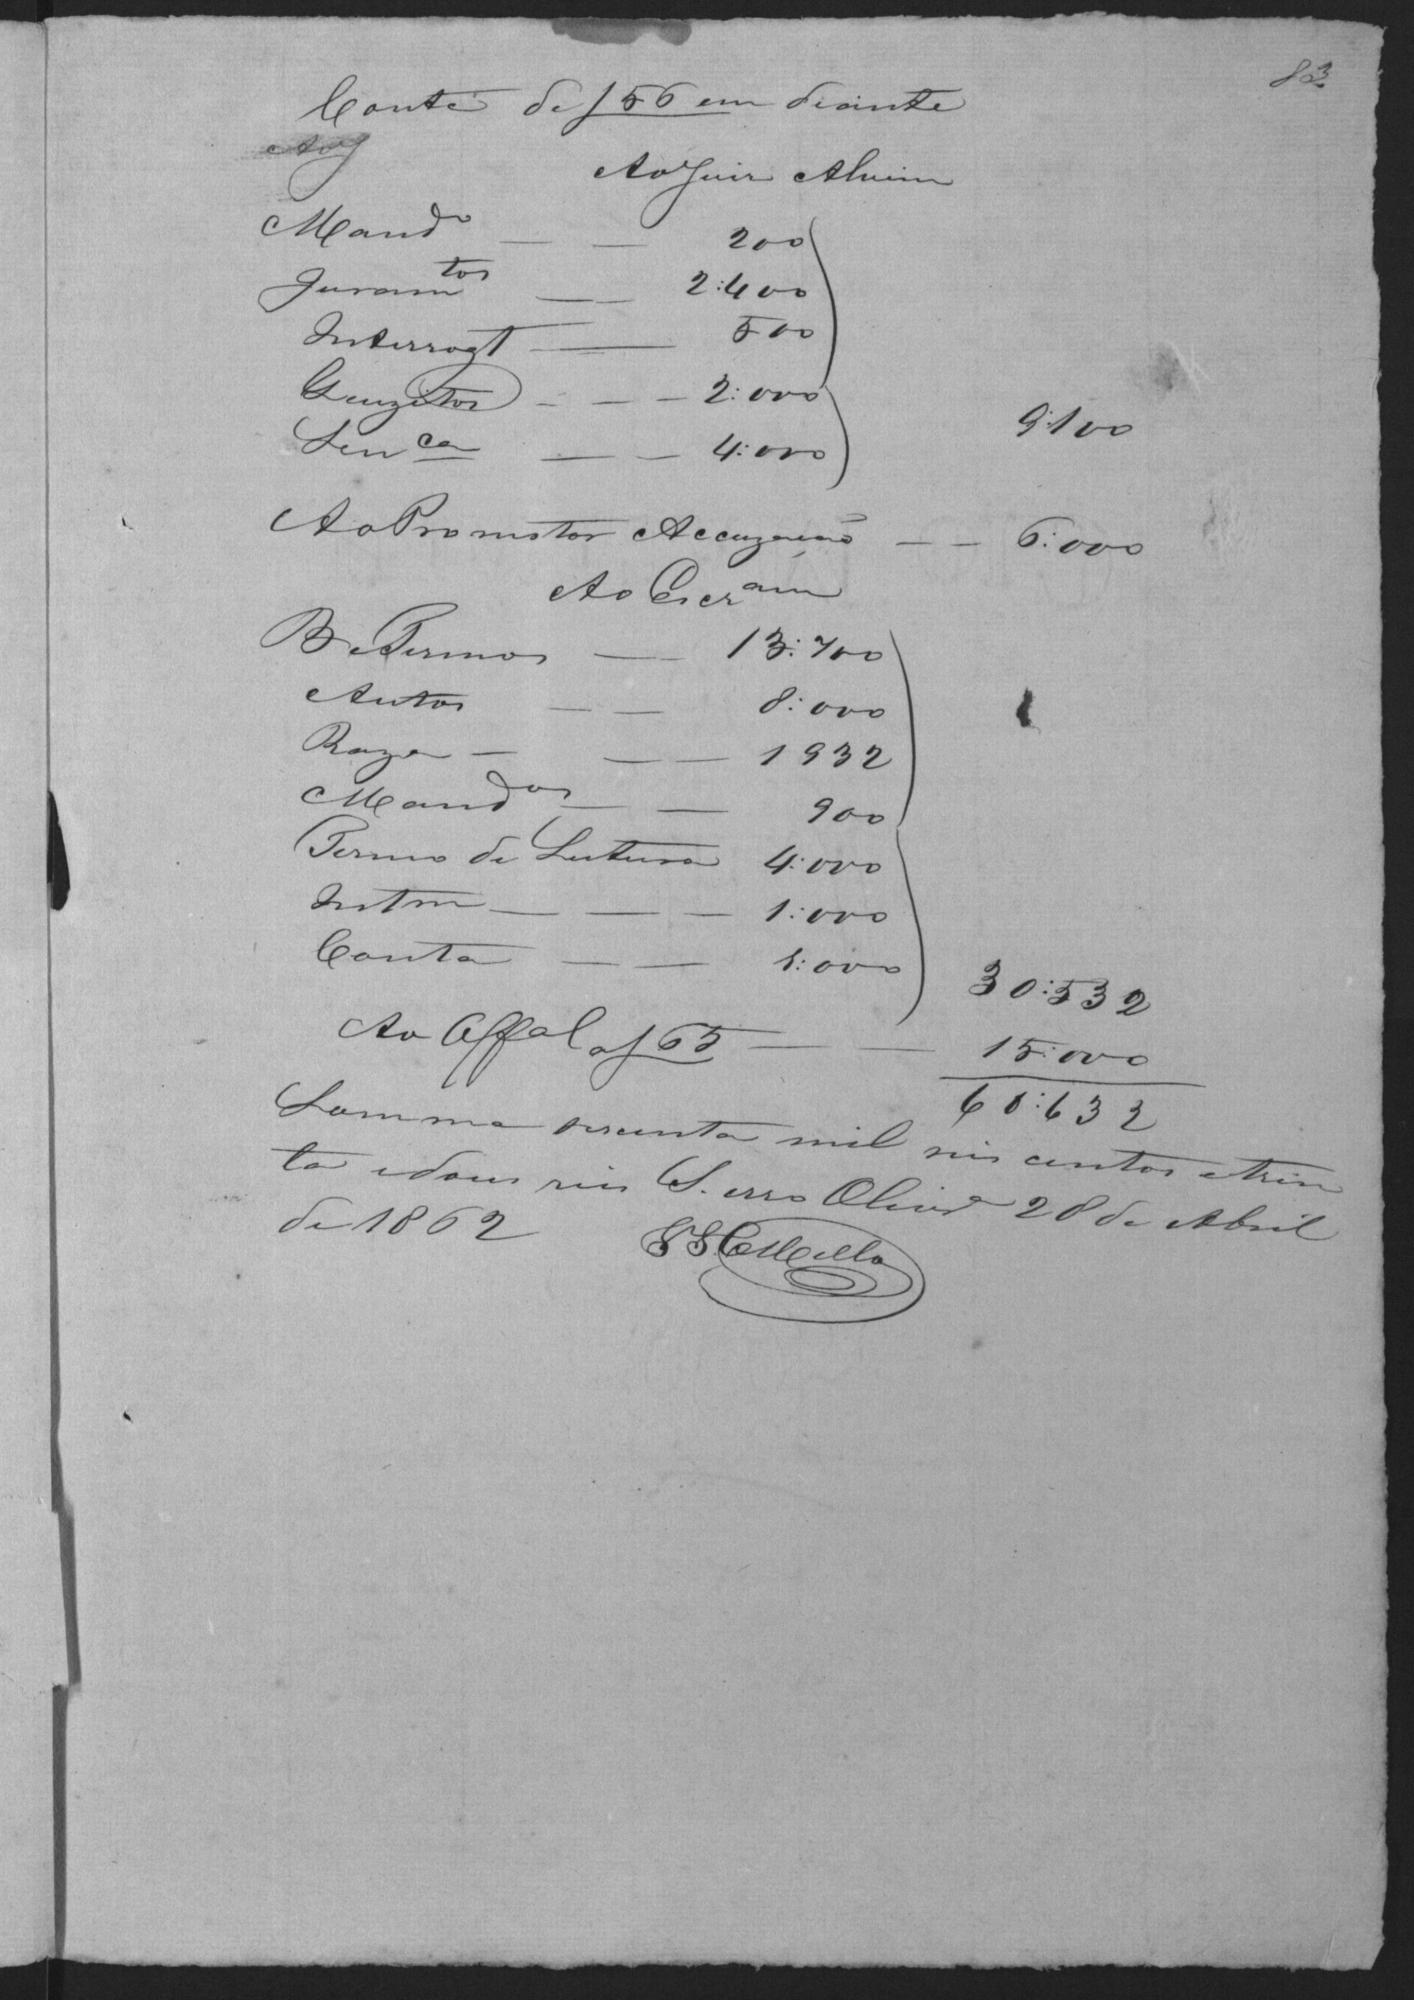 83
Conta de f 56 em diante
Ao J
Ao Juiz Alvim
Mand.o — — 200
Juram.tos — — 2:400
Interrogt — — 500
Quezitos — — — 2:000
Sen.ca — — 4:000
9:100
Ao Promotor Accuzação — — 6:000
Ao Escr.am
Termos — — 13:700
Autos — — 8:000
Raza — — — 1932
Mand.os — — 900
Termo de Leitura 4:000
Intm — — — 1:000
Conta — — 1:000
30:532
Ao Offal a f 65 — — 15:000
60:632
Somma secenta mil seis centos e trin
ta e dous reis S. erro 28 de Abril
de 1862